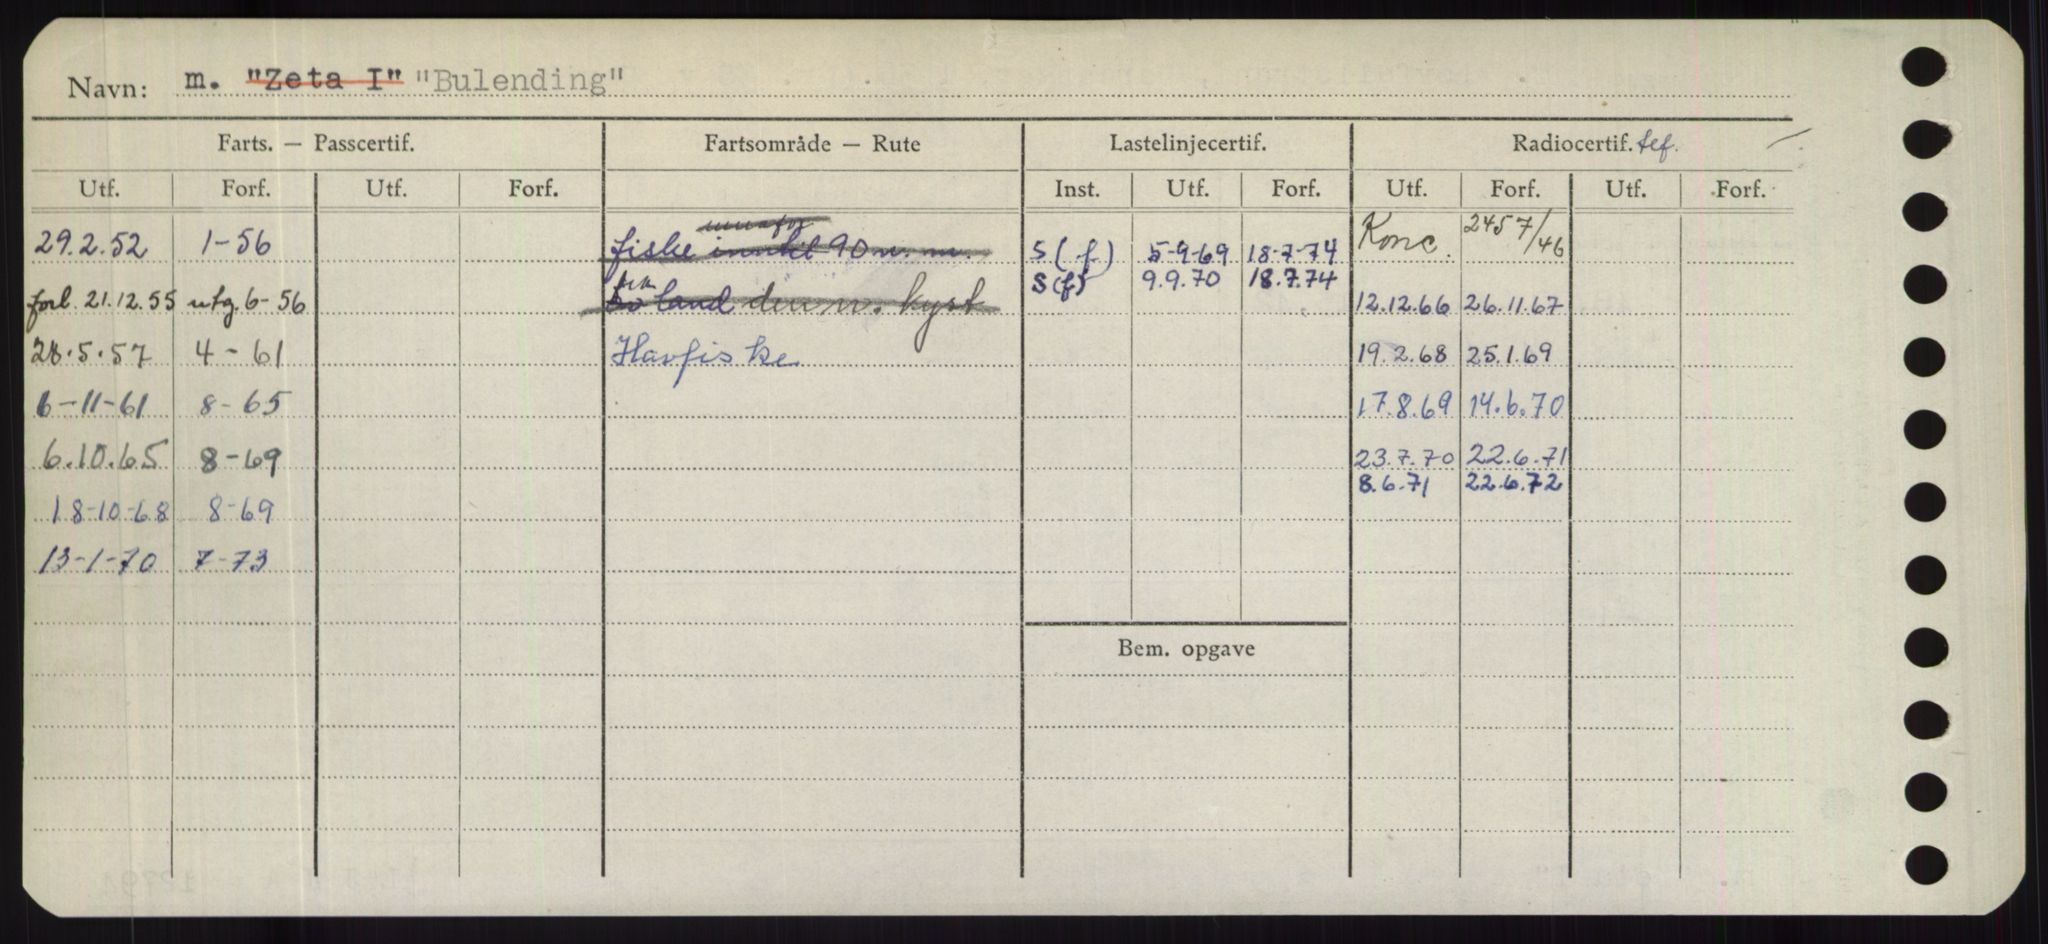 Navn: m. "Zeta I" "Bulending"
Farts. — Passcertif. Fartsområde — Rute Lastelinjecertif. Radiocertif. tef.
Utf. Forf. Utf. Forf. Inst. Utf. Forf. Utf. Forf. Utf. Forf.
29.2.52 1-56 fiske inntil 90 n. m. S (f) 5-9-69 18-7-74 Konc. 2457/46
S (f) 9.9.70 18.7.74
forl. 21.12.55 utg. 6-56 land den n. kyst 12.12.66 26.11.67
28.5.57 4-61 Havfiske 19.2.68 25.1.69
6-11-61 8-65 17.8.69 14.6.70
6.10.65 8-69 23.7.70 22.6.71
8.6.71 22.6.72
18-10-68 8-69
13-1-70 7-73
Bem. opgave